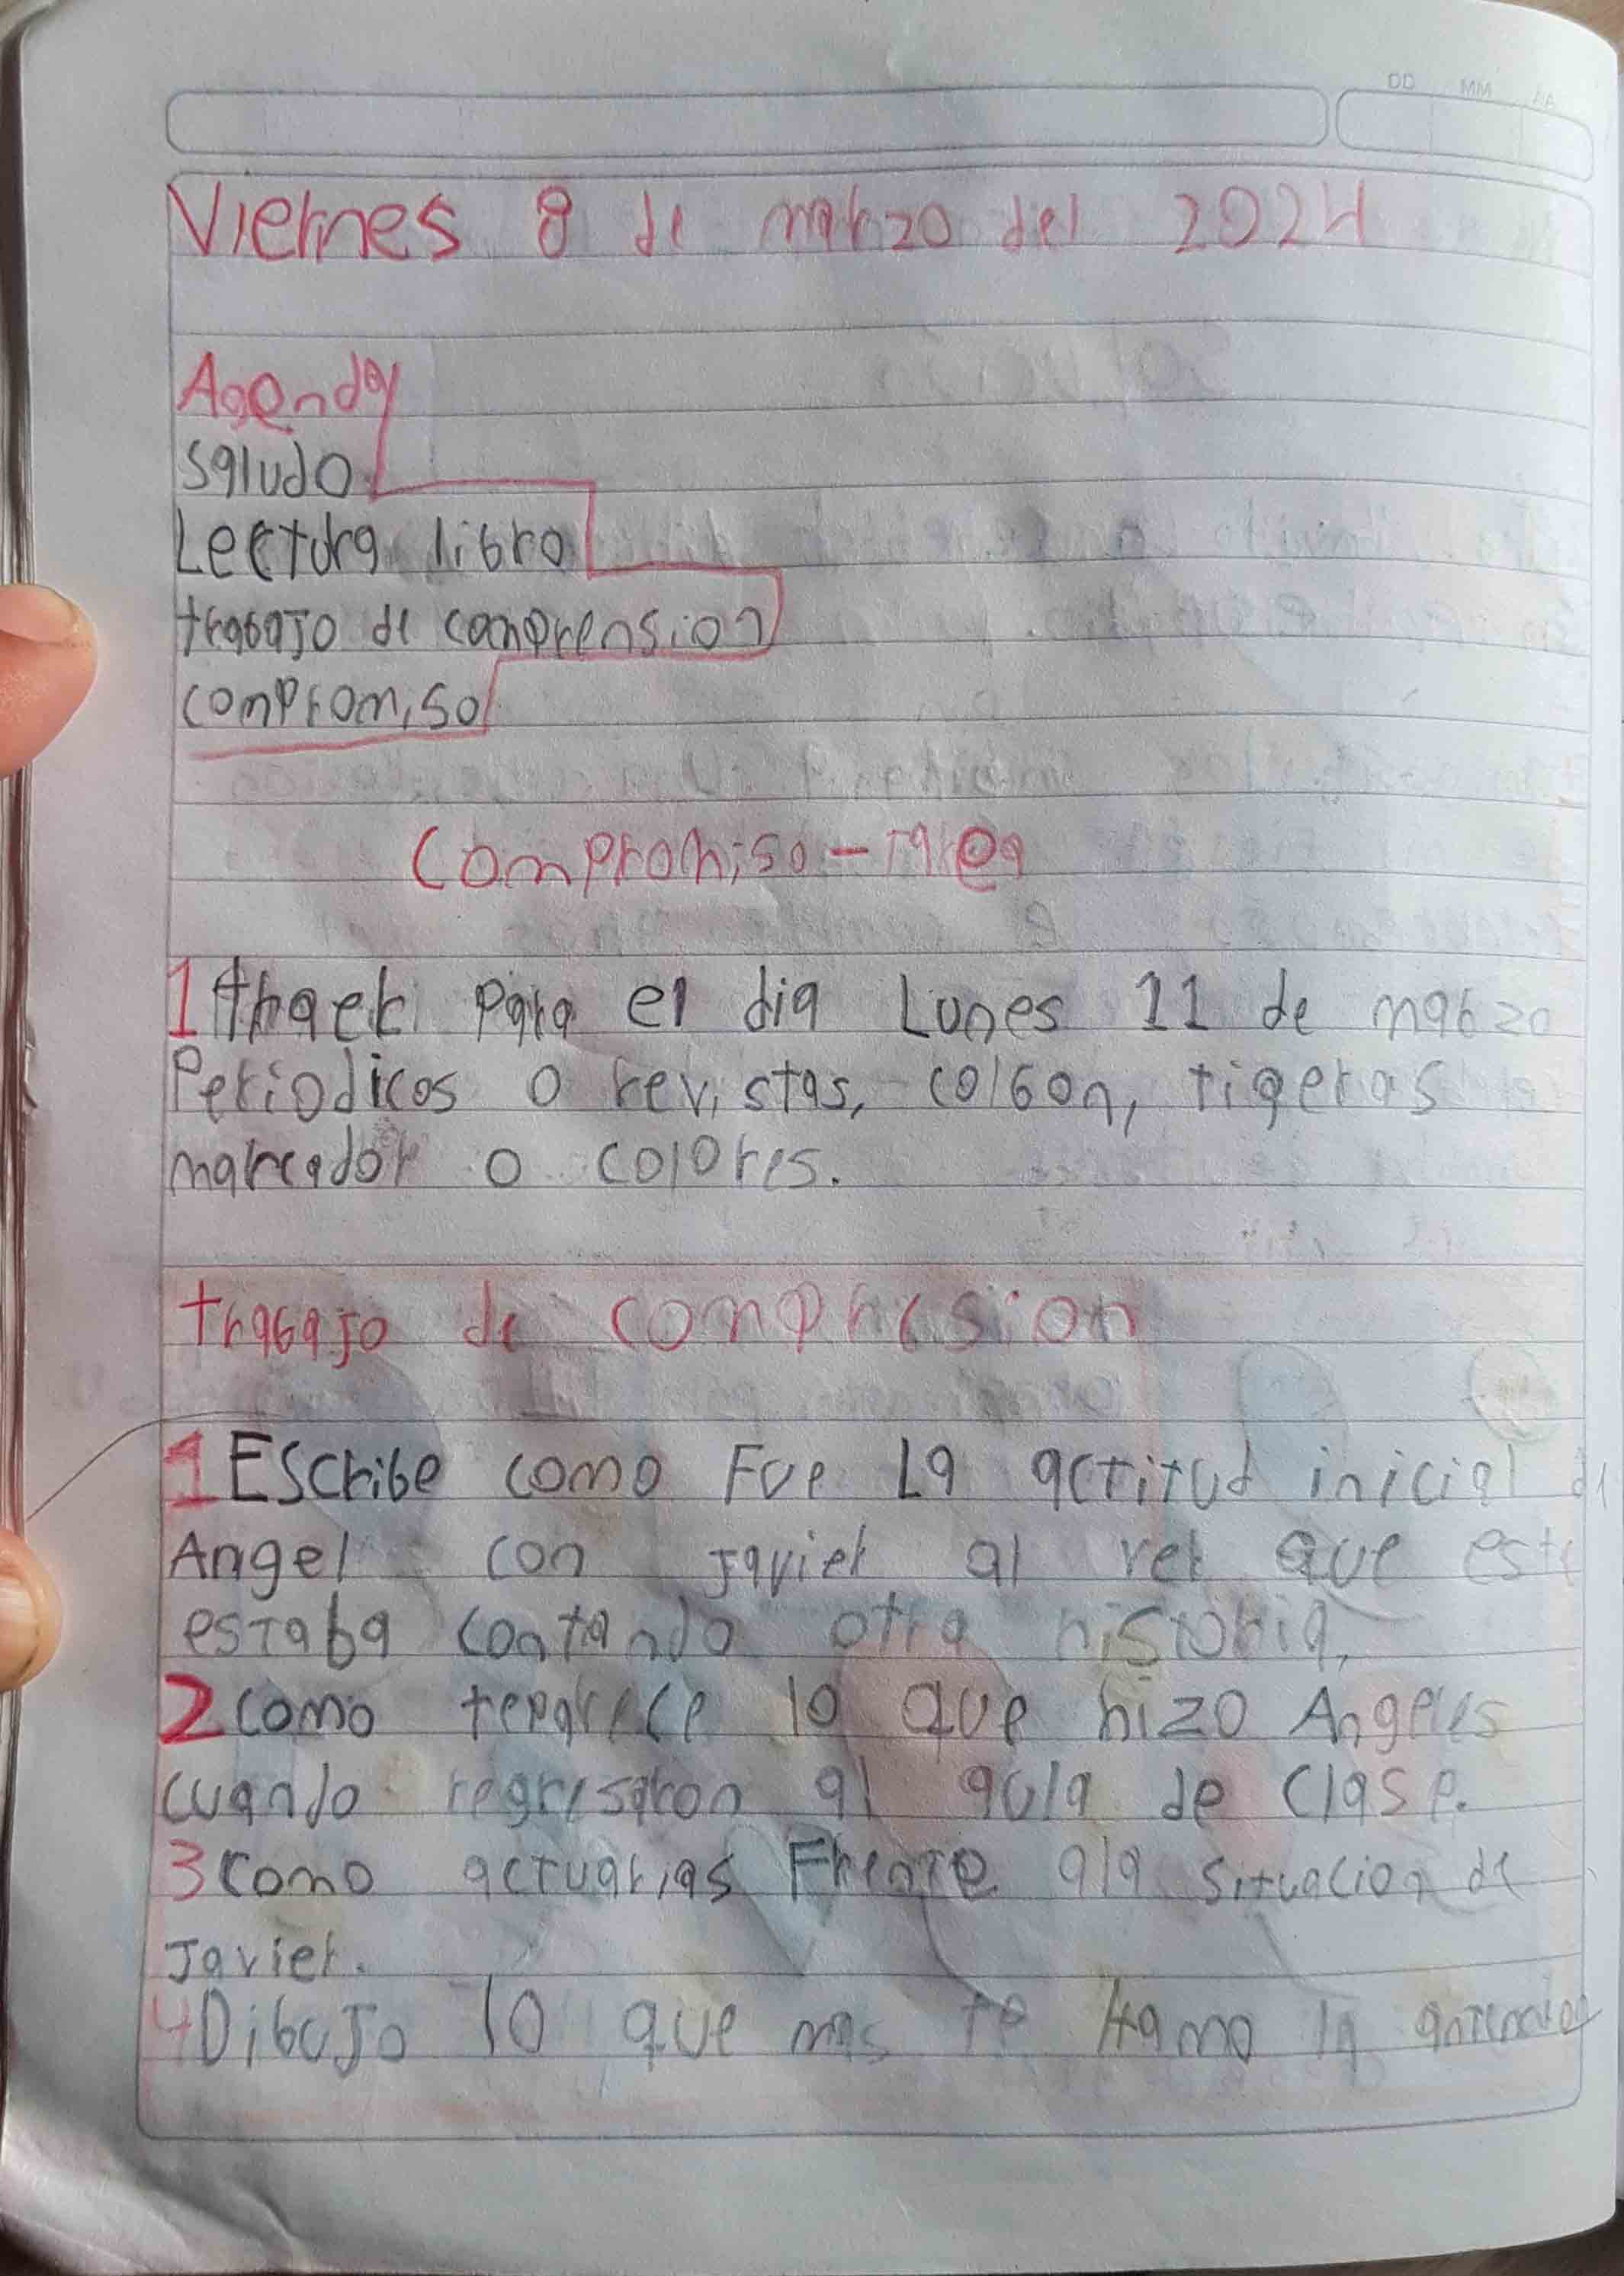 DD MM AA
Viernes 8 de marzo del 2024
Agenda
Saludo
Lectura libro
trabajo de comprension
compromiso
Compromiso - Tarea
1 traer para el dia Lunes 11 de marzo
Periodicos o revistas, colbon, tigeras
marcador o colores.
trabajo de compresion
1 Escribe como Fue La actitud inicial de
Angel con Javier al ver que este
estaba contando otra historia,
2 como teparece lo que hizo Angeles
cuando regresaron al aula de clase.
3 como actuarias Frente ala situacion de
Javier.
4 Dibujo lo que mas te llamo la